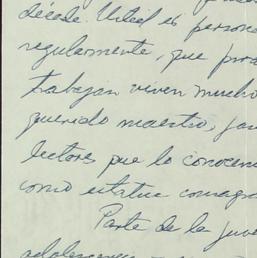 décade. Usted es persona
regularmente, que
trabajan viven mucho
querido maestro,
lectores que lo conocen
como estatua consagra
Parte de la juve
adolescen